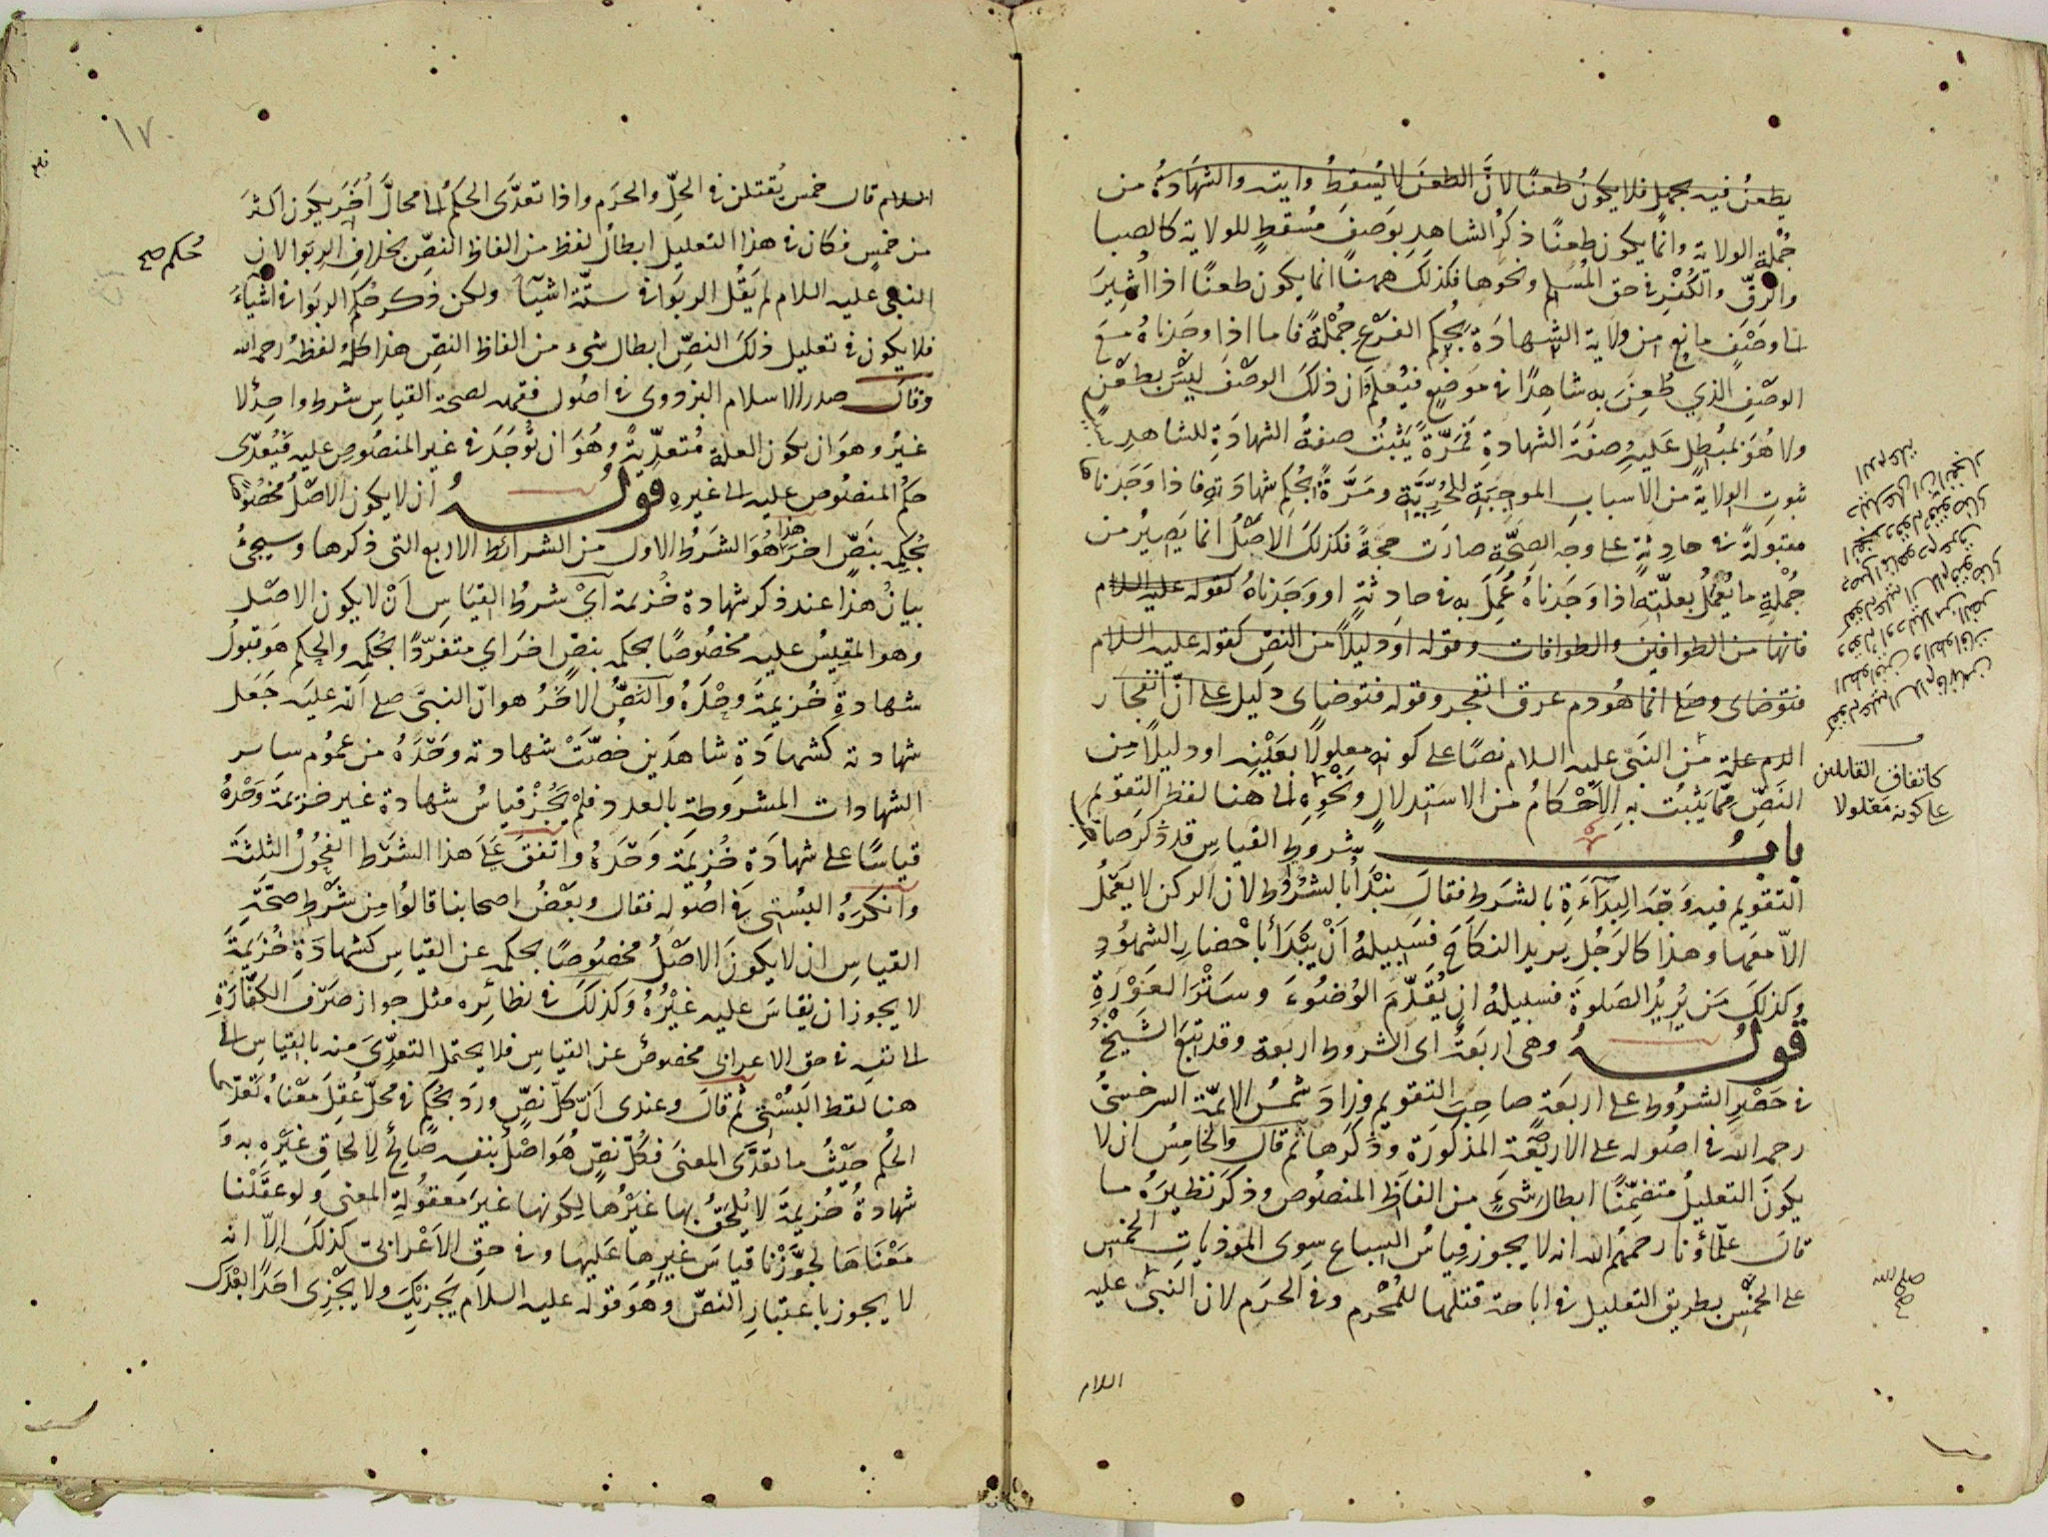 يطعن فيه بجمل فلا يكون طعنًا لانَّ الطعنَ لا يُسقِطُ ولايته والشهادةُ من
جُملةِ الولاية وانما يكون طعنًا ذكرُ الشاهدِ بوَصفٍ مُسْقطٍ للولاية كالصبا
والرّقِّ والكُفْرِ في حق المُسْلم ونحوها فكذلك ههنا انما يكون طعنًا اذا اُشيرَ
الى وَصْفٍ مانعٍ من ولاية الشهادَةِ بحُكم الفرعِ جملةً فاما اذا وجَدناهُ مع
الوصْفِ الذي طُعِنَ به شاهِدًا في مَوضعٍ فيُعلَمُ ان ذلك الوصْفَ ليسَ بطعْنٍ
ولا هُوَ بمُبطلٍ عَليهِ صفَةَ الشهادةِ فمَرّةً يَثبُتُ صفةُ الشهادَةِ للشاهدِ
ثبوتِ الولايةِ من الاسبابِ الموجِبَةِ للحُرِّيَّةِ ومَرَّةً بحُكم شهادَتهِ فاذا وَجَدناها
مقبولةً في حادِثةٍ على وجه الصِحَّةِ صارَت حجةً فكذلك الاَصْلُ انما يَصِيرُ من
جُمْلةِ ما يُعْمَلُ بعلّتِه اذا وَجَدناهُ عُمِلَ به في حادِثةٍ او وَجَدْناهُ كقوله عليه السلام
فانها من الطوافين والطوافات وقوله او دليلاً من النصِّ كقوله عليه السلام
فتوضاى وصَلى انما هُو دم عرق انفجر وقوله فتوضاى دليل على انّ انفجار
الدم علة من النَبىّ عليه السلام نصًا على كونه معلولاً بعَيْنِه او دليلاً مِن
النَصِّ مِمّا يَثبُت به الاَحْكامُ من الاستدلالِ ونَحْوِه الى هنا لفظ التقويم
بابُ شروطِ القياسِ قد ذكرَ صاحب
التقويمِ فيه وَجْهَ البِدَآءَةِ بالشرَط فقال نبْدَأُ بالشُرُوط لان الركن لا يَعْمَلُ
الاّ معَها وهذا كالرَجُلِ يريد النكاحَ فسَبيلُهُ اَنْ يَبْدَأَ باحْضارِ الشهُودِ
وكذلك مَن يُرِيدُ الصَلوةَ فسبيلهُ ان يُقَدّمَ الوُضوءَ وسَتْرَ العَوْرَةِ
قولُهُ وهي اربَعَةٌ اى الشروط اربعة وقد تبعَ الشيْخُ
في حَصْرِ الشرُوط على اربعَةٍ صاحبَ التقويم وزادَ شمْسُ الايمّة السرخسىُّ
رحمه الله في اصُوله على الاربَعَةِ المذكورَة وذكرَها ثم قال والخامِسُ ان لا
يكونَ التعليلُ متضمِّنًا ابطالَ شىءٍ من الفاظِ المنصُوص وذكرَ نظيرَهُ ما
قال علماؤنا رحمهُم الله انه لا يجوز قياسُ السِباعِ سِوى الموذياتِ الخمْس
على الخمْسِ بطريق التعليل في اباحة قتلها للمُحْرِم وفي الحرَم لان النبىَّ عليه
السلام
كاتفاق القايلين
على كونه معلولا
١٧
السلام قال خمس يُقتلن في الحِلِّ والحرَم واذا تعدَّى الحكمُ الى محالَّ اُخَرَ يكون اكثرَ
من خمسٍ فكان في هذا التعليلِ ابطالُ لفظٍ من الفاظ النصِّ بخلاف الربوا لان
النبى عليه السلام لم يقُل الربوا في ستّة اشيآءَ ولكن ذكر حُكم الربوا في اشياءَ
فلا يكون في تعليل ذلك النصِّ ابطال شىء من الفاظ النصِّ هذا كلُّهُ لفظهُ رحمه الله
وقال صدر الاسلام البزدوى في اصُول فقهه لصحة القياسِ شرط واحِدٌ لا
غيرُ وهوَ ان يكون العلة مُتعدّيةً وهُوَ ان تُوْجَدَ في غير المنصُوصِ عليه فيُعدّى
حكمُ المنصُوص عليه الى غيرهِ قولُهُ ان لا يكون الاصْلُ مخصُوصًا
بحُكمِه بنَصٍّ اخرَ هذا هُوَ الشرَطُ الاول من الشرائط الاربع التى ذكرها وسيجئُ
بيانُ هذا عند ذكر شهادة خُزيمة اَىْ شرطُ القيَاسِ اَنْ لا يكون الاصْل
وهو المقِيسُ عليه مخصُوصًا بحكمه بنصٍّ اخرَ اي متفرّدًا بحُكمِه والحكم هو قبولُ
شهادةِ خُزيمةَ وحْدَهُ والنصُّ الآخَرُ هو انّ النبىَّ صلى الله عليه جَعَل
شهادته كشهادَةِ شاهدَين خُصَّتْ شهادته وَحْدَهُ من عمُوم ساىر
الشهادات المشروطةِ بالعدد فلمْ يَجُزْ قياسُ شهادة غير خزيمةَ وَحْدهُ
قياسًا على شهادَة خُزيمةَ وَحْدَهُ واتفقَ عَلَى هذا الشرْط الفحُولُ الثلثةُ
وانكرَهُ البُستى في اصُوله فقال وبعْضُ اصحابنا قالوُا مِن شَرْط صحَّةِ
القياسِ ان لا يكونَ الاَصْلُ مخصُوصًا بحكمه عن القياسِ كشهادَةِ خُزيمَةَ
لا يجوز ان يُقاسَ عليه غيْرُهُ وَكَذلكَ في نظائِره مثل جواز صَرْف الكفّارَةِ
الى نفسِه في حق الاعرابى مخصوصٌ عن القياسِ فلا يحتمل التعدِّىَ منه بالقياسِ الى
هنا لفظ البُسْتِى ثم قالَ وعندى اَنّ كلّ نصٍّ ورَدَ بحُكمٍ في محلٍّ عُقِلَ معْناهُ تعَدّى
الحُكم حيْثُ ما تعَدَّى المعنى فكُلّ نصٍّ هُوَ اصْلٌ بنفسِه صالحٌ لالحاقِ غيْرِه به وَ
شهادةُ خُزيمةَ لا يُلحَقُ بها غيرُها لِكونها غيرَ معقُولةِ المعنى ولو عقَلْنا
مَعْنَاهَا لجوَّزْنا قياسَ غيرِها عَليها وفي حقِ الاَعْرابىِّ كذلكَ اِلاّ انه
لا يجوز باعتبارِ النصّ وهُوَ قوله عليه السلام يَجزيكَ ولا يَجْزِى احَدًا بَعْدَكَ
حُكم صح